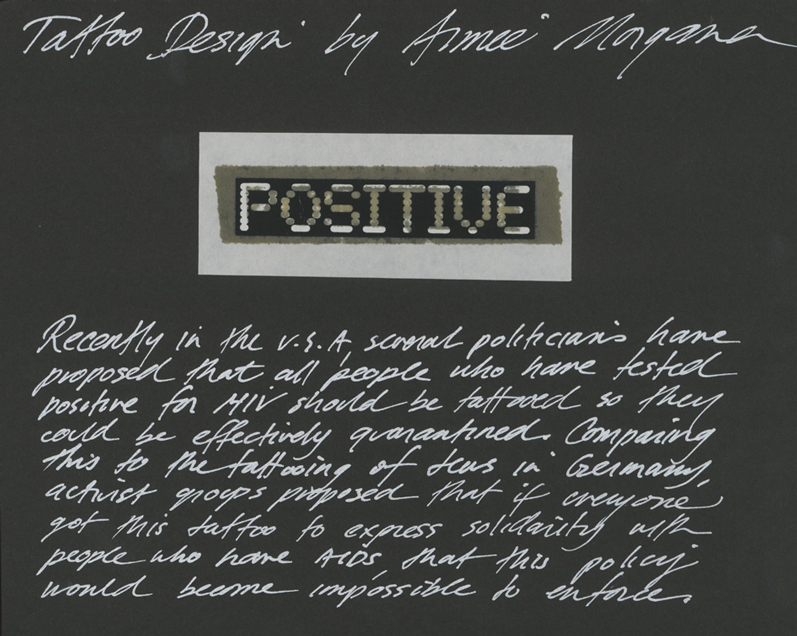 Tattoo Design by Aimee Morgana
POSITIVE
Recently in the U.S.A. several politicians have
proposed that all people who have tested
positive for HIV should be tattooed so they
could be effectively quarantined. Comparing
this to the tattooing of Jews in Germany,
activist groups proposed that if everyone
got this tattoo to express solidarity with
people who have AIDS, that this policy
would become impossible to enforce.